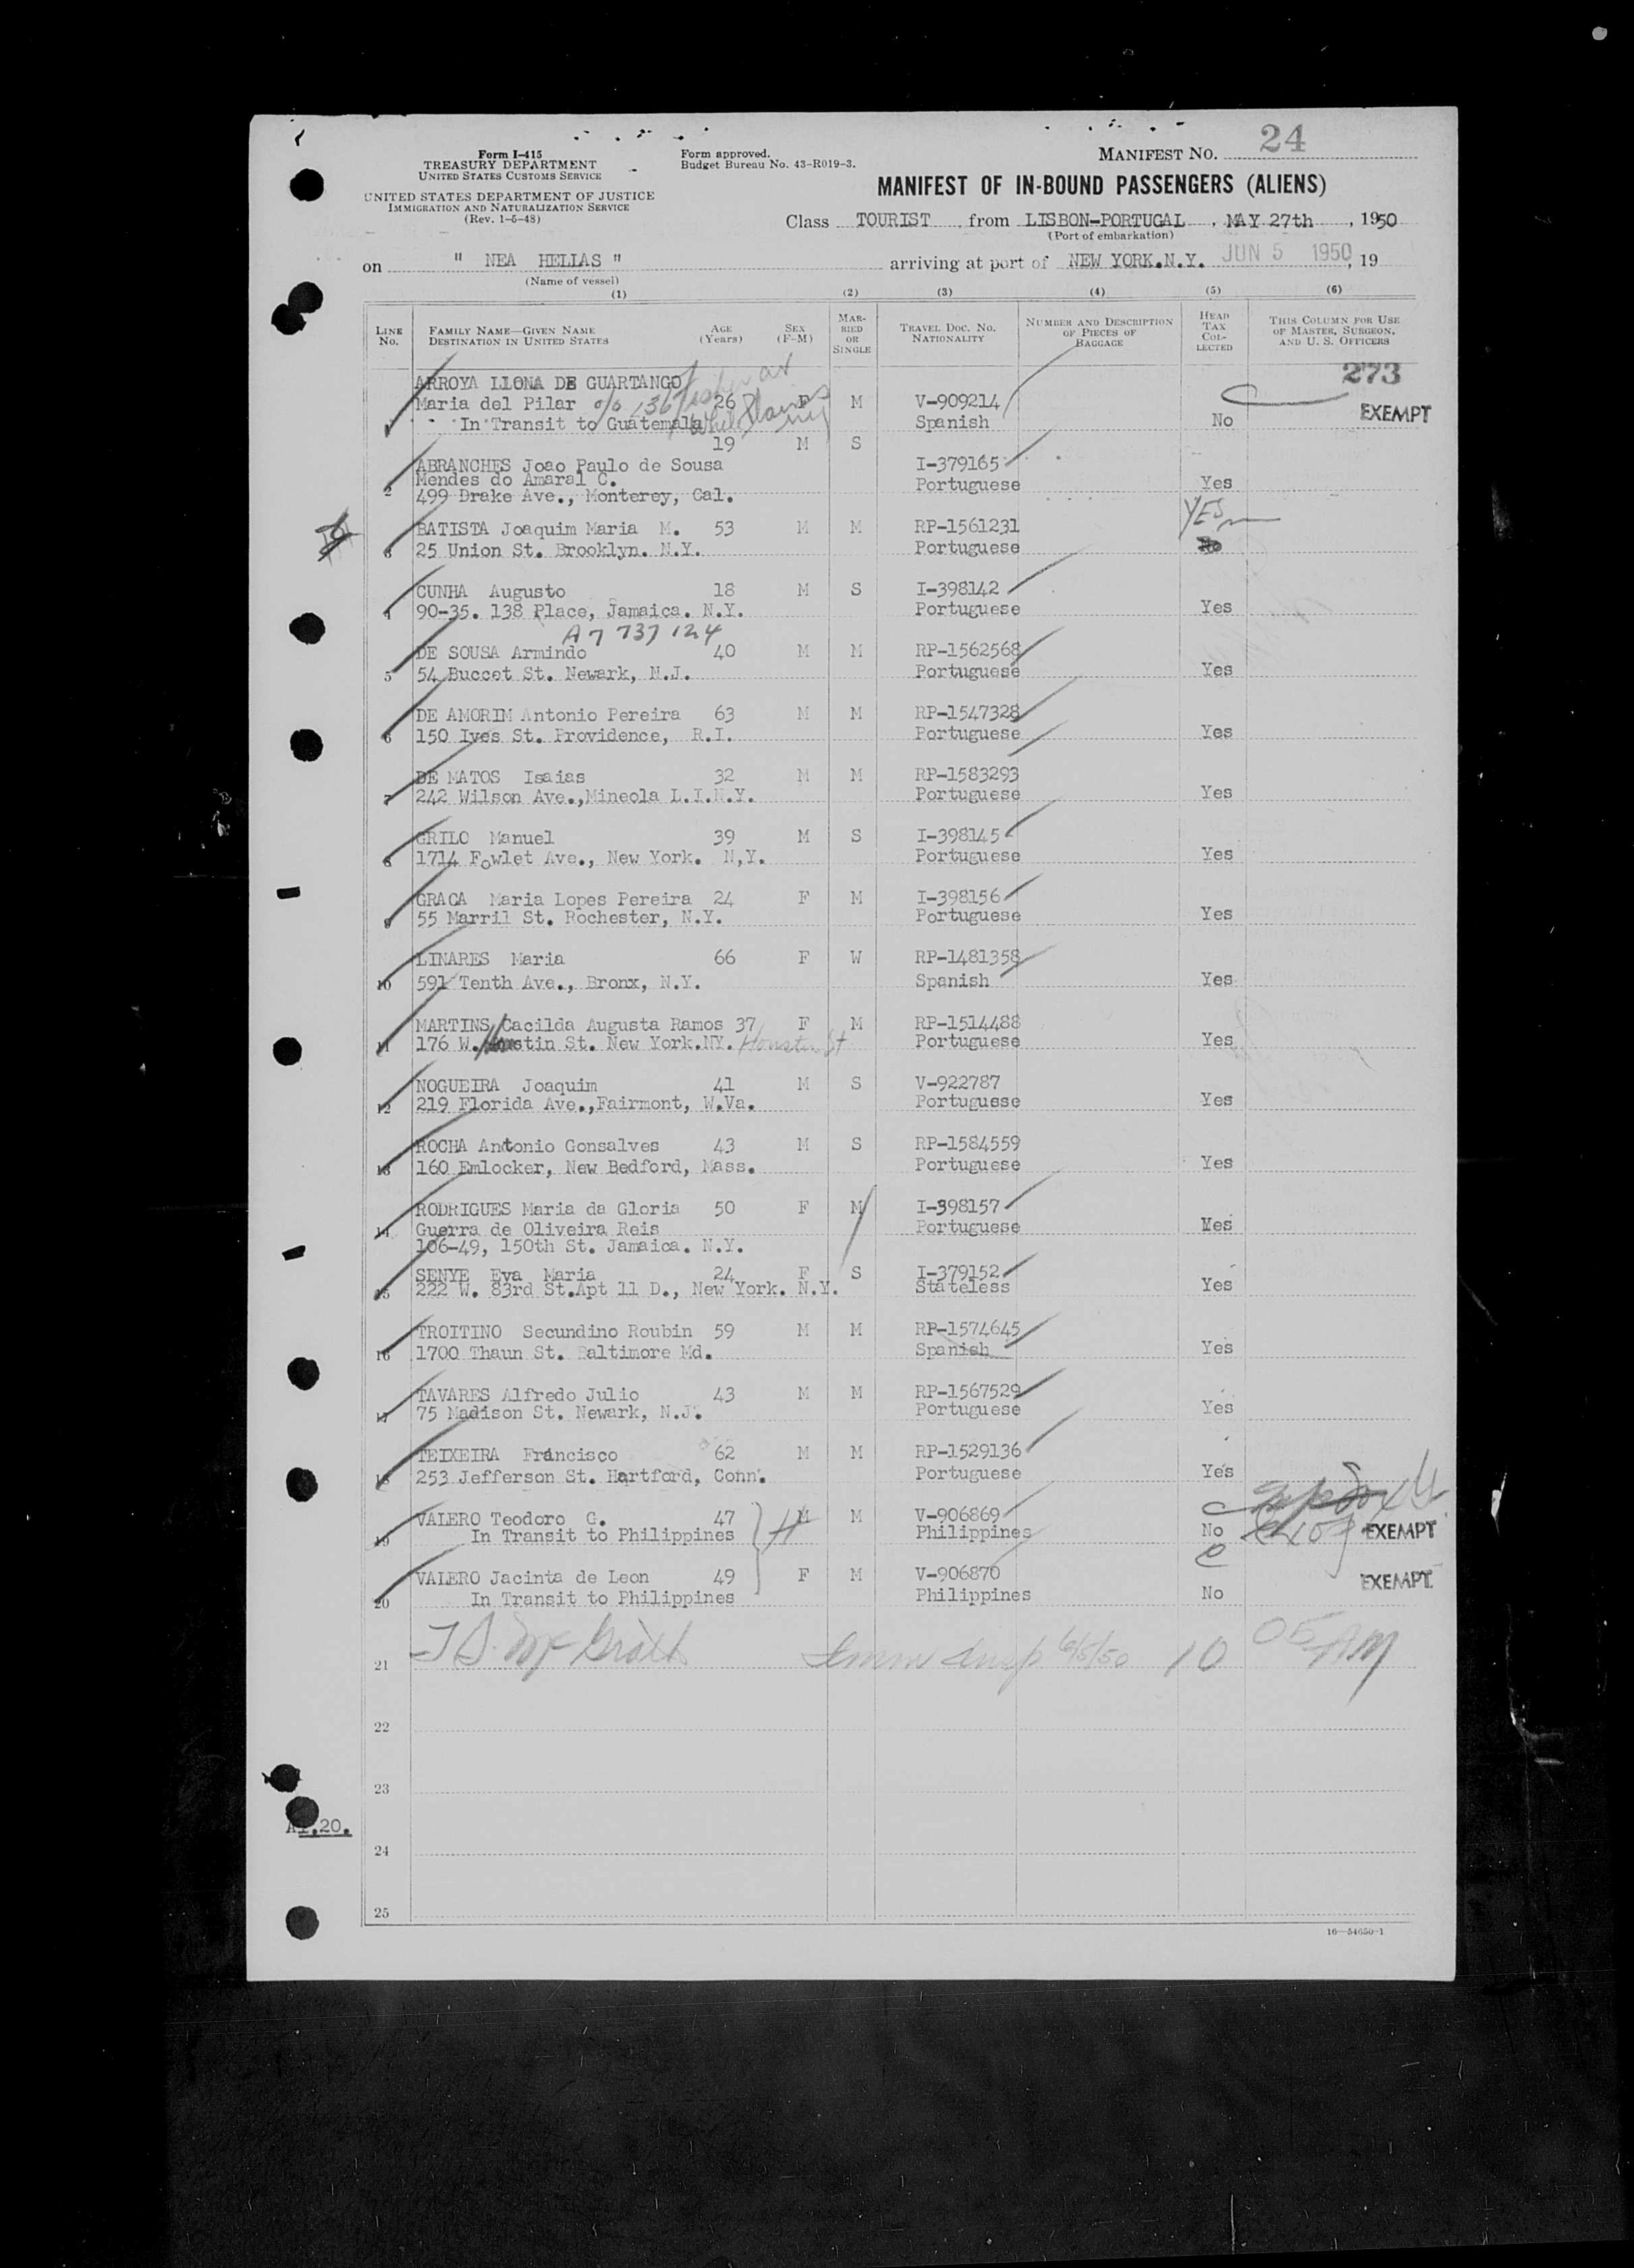 24
Form I-415
TREASURY DEPARTMENT
UNITED STATES CUSTOMS SERVICE
Form approved.
Budget Bureau No. 43-R019-3.
MANIFEST NO.
UNITED STATES DEPARTMENT OF JUSTICE
IMMIGRATION AND NATURALIZATION SERVICE
(Rev. 1-5-48)
MANIFEST OF IN-BOUND PASSENGERS (ALIENS)
Class TOURIST from LISBON-PORTUGAL, MAY 27th, 1950
(Port of embarkation)
on " NEA HELLAS " arriving at port of NEW YORK.N.Y. JUN 5 1950, 19
(Name of vessel)
(1) (2) (3) (4) (5) (6)
LINE NO. FAMILY NAME—GIVEN NAME DESTINATION IN UNITED STATES AGE (YEARS) SEX (F-M) MARRIED OR SINGLE TRAVEL DOC. NO. NATIONALITY NUMBER AND DESCRIPTION OF PIECES OF BAGGAGE HEAD TAX COLLECTED THIS COLUMN FOR USE OF MASTER, SURGEON, AND U. S. OFFICERS
273
ARROYA LLONA DE GUARTANGO
Maria del Pilar c/o 136 26 F M V-909214
1 In Transit to Guatemala White Plains NY Spanish No EXEMPT
19 M S
ABRANCHES Joao Paulo de Sousa I-379165
Mendes do Amaral C. Portuguese Yes
2 499 Drake Ave., Monterey, Cal.
BATISTA Joaquim Maria M. 53 M M RP-1561231 YES
3 25 Union St. Brooklyn. N.Y. Portuguese No
CUNHA Augusto 18 M S I-398142
4 90-35. 138 Place, Jamaica. N.Y. Portuguese Yes
A7 737 124
DE SOUSA Armindo 40 M M RP-1562568
5 54 Buccet St. Newark, N.J. Portuguese Yes
DE AMORIM Antonio Pereira 63 M M RP-1547328
6 150 Ives St. Providence, R.I. Portuguese Yes
DE MATOS Isaias 32 M M RP-1583293
7 242 Wilson Ave.,Mineola L.I.N.Y. Portuguese Yes
GRILO Manuel 39 M S I-398145
8 1714 Fowlet Ave., New York. N,Y. Portuguese Yes
GRACA Maria Lopes Pereira 24 F M I-398156
9 55 Marril St. Rochester, N.Y. Portuguese Yes
LINARES Maria 66 F W RP-1481358
10 591 Tenth Ave., Bronx, N.Y. Spanish Yes
MARTINS Cacilda Augusta Ramos 37 F M RP-1514488
11 176 W. Houstin St. New York.NY. Houston St Portuguese Yes
NOGUEIRA Joaquim 41 M S V-922787
12 219 Florida Ave.,Fairmont, W.Va. Portuguese Yes
ROCHA Antonio Gonsalves 43 M S RP-1584559
13 160 Emlocker, New Bedford, Mass. Portuguese Yes
RODRIGUES Maria da Gloria 50 F M I-398157
14 Guerra de Oliveira Reis Portuguese Yes
106-49, 150th St. Jamaica. N.Y.
SENYE Eva Maria 24 F S I-379152
15 222 W. 83rd St.Apt 11 D., New York. N.Y. Stateless Yes
TROITINO Secundino Roubin 59 M M RP-1574645
16 1700 Thaun St. Baltimore Md. Spanish Yes
TAVARES Alfredo Julio 43 M M RP-1567529
17 75 Madison St. Newark, N.J. Portuguese Yes
TEIXEIRA Francisco 62 M M RP-1529136
18 253 Jefferson St. Hartford, Conn. Portuguese Yes
VALERO Teodoro G. 47 M M V-906869
19 In Transit to Philippines Philippines No EXEMPT
VALERO Jacinta de Leon 49 F M V-906870
20 In Transit to Philippines Philippines No EXEMPT
21 Imm Insp 6/5/50 10 05 AM
22
23
.20.
24
25
16—54650-1